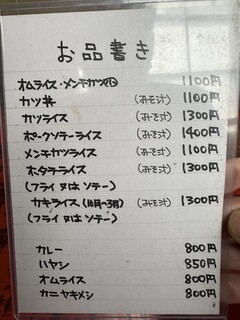 お品書き
オムライス・メンチカツ 1100円
カツ丼 (みそ汁) 1100円
カツライス (みそ汁) 1300円
ポークソテーライス (みそ汁) 1400円
メンチカツライス (みそ汁) 1100円
ホタテライス (みそ汁) 1300円
(フライ又はソテー)
カキライス(10月〜3月) (みそ汁) 1300円
(フライ又はソテー)
カレー 800円
ハヤシ 850円
オムライス 800円
カニヤキメシ 800円